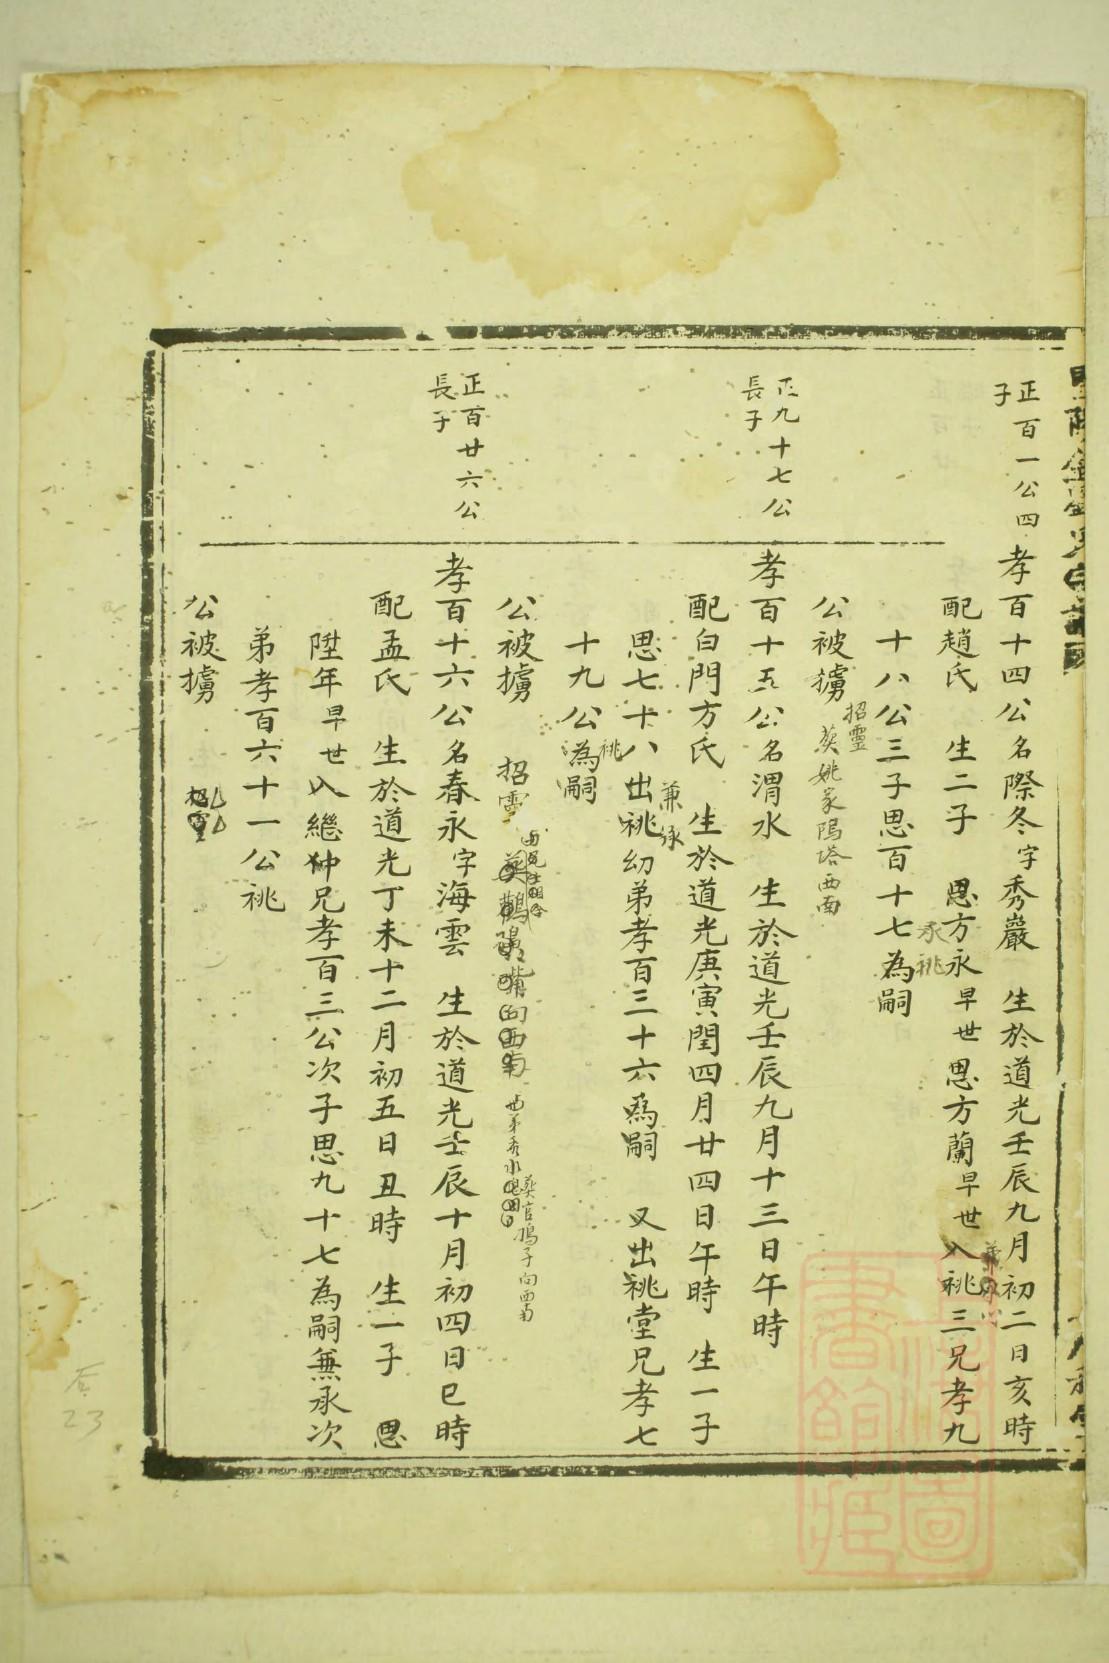 正百一公四
子
孝百十四公名際冬字秀巖 生於道光壬辰九月初二日亥時
配趙氏 生二子 思方永早世 思方蘭早世 入祧三兄孝九
承祧
十八公三子思百十七為嗣
公被擄
招靈
葬姚家隝塔西南
正九十七公
長子
孝百十五公名渭水 生於道光壬辰九月十三日午時
配白門方氏 生於道光庚寅閏四月廿四日午時 生一子
兼祧
思七十八出祧幼弟孝百三十六為嗣 又出祧堂兄孝七
祧
十九公為嗣
公被擄 招靈
向西南
葬官隝子向西南
正百廿六公
長子
孝百十六公名春永字海雲 生於道光壬辰十月初四日巳時
配孟氏 生於道光丁未十二月初五日丑時 生一子 思
陞年早世 入繼仲兄孝百三公次子思九十七為嗣兼承次
弟孝百六十一公祧
公被擄 招靈
右
23